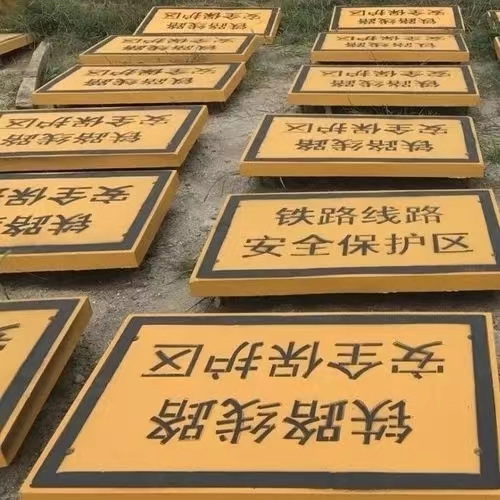 铁路线路
安全保护区
铁路线路
安全保护区
铁路线路
安全保护区
铁路线路
安全保护区
铁路线路
安全保护区
铁路线路
安全保护区
铁路线路
安全保护区
铁路线路
安全保护区
铁路线
安全保
铁路线路
安全保护区
铁路线路
安全保护区